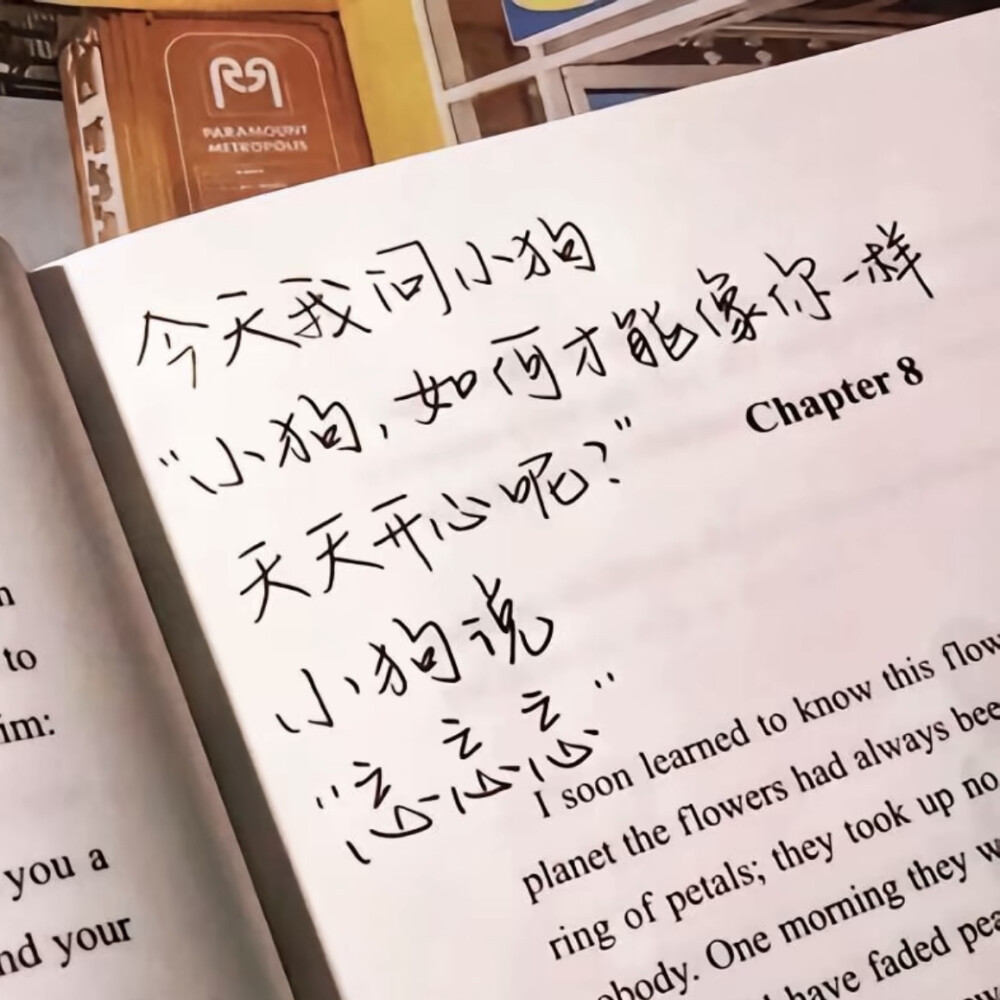 PARAMOUNT
METROPOLIS
今天我问小狗
“小狗,如何才能像你一样
天天开心呢?”
小狗说
“忘忘忘”
Chapter 8
I soon learned to know this flow
planet the flowers had always bee
ring of petals; they took up no
obody. One morning they w
have faded pea
n
to
im:
you a
nd your